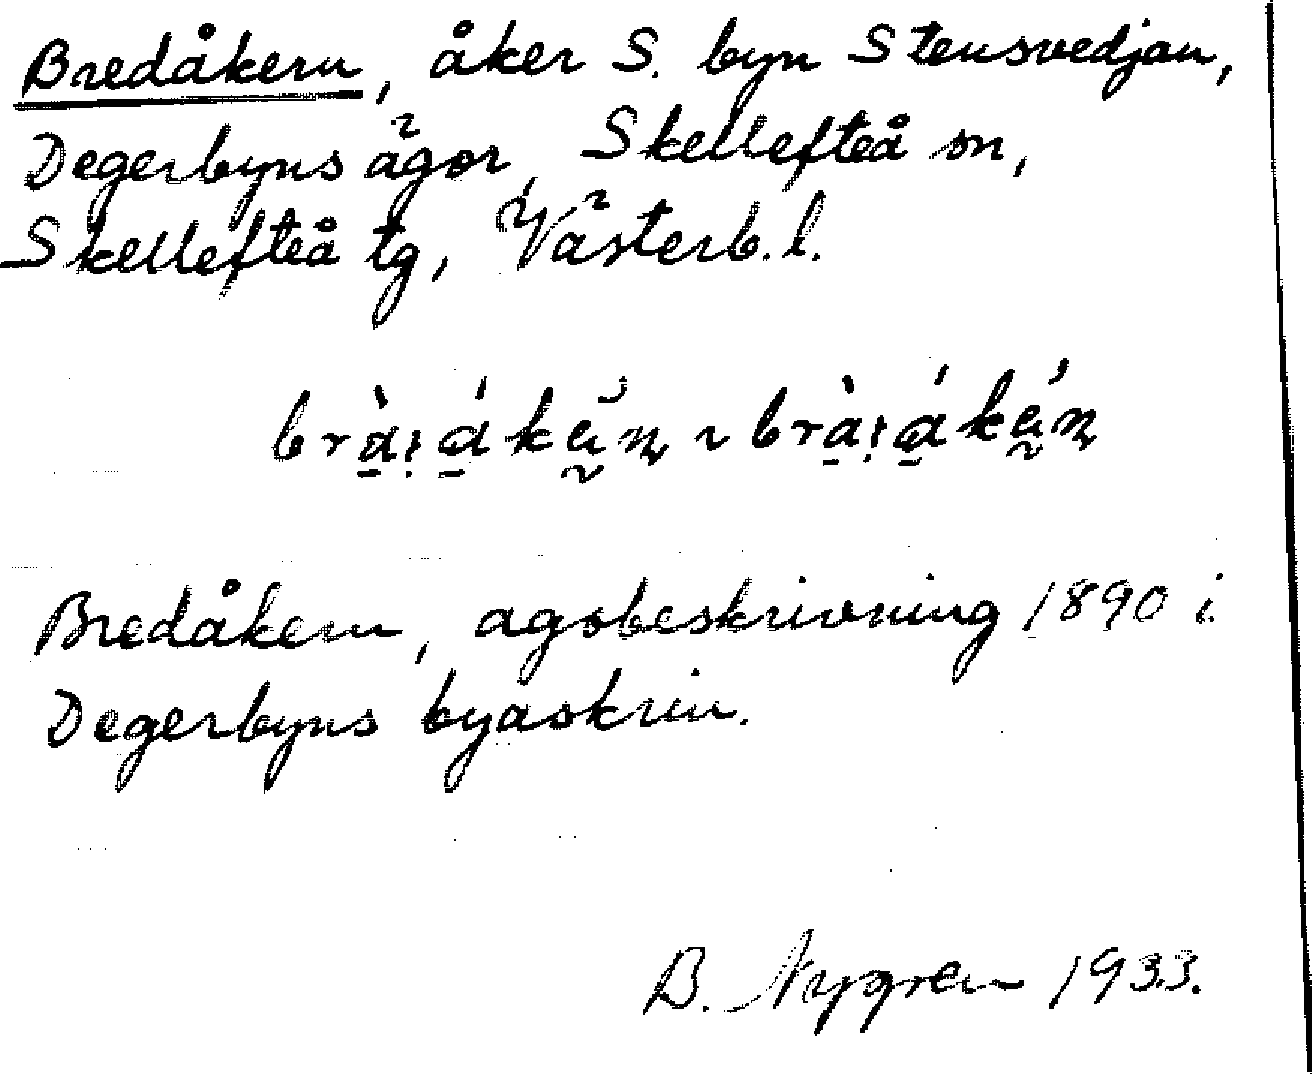 Bredåkern, åker S. byn Stensvedjan,
Degerbyns ägor, Skellefteå sn,
Skellefteå tg, Västerb. l.
Bredåkern, agobeskrivning 1890 i
Degerbyns byaskrin.
B. Nygren 1933.